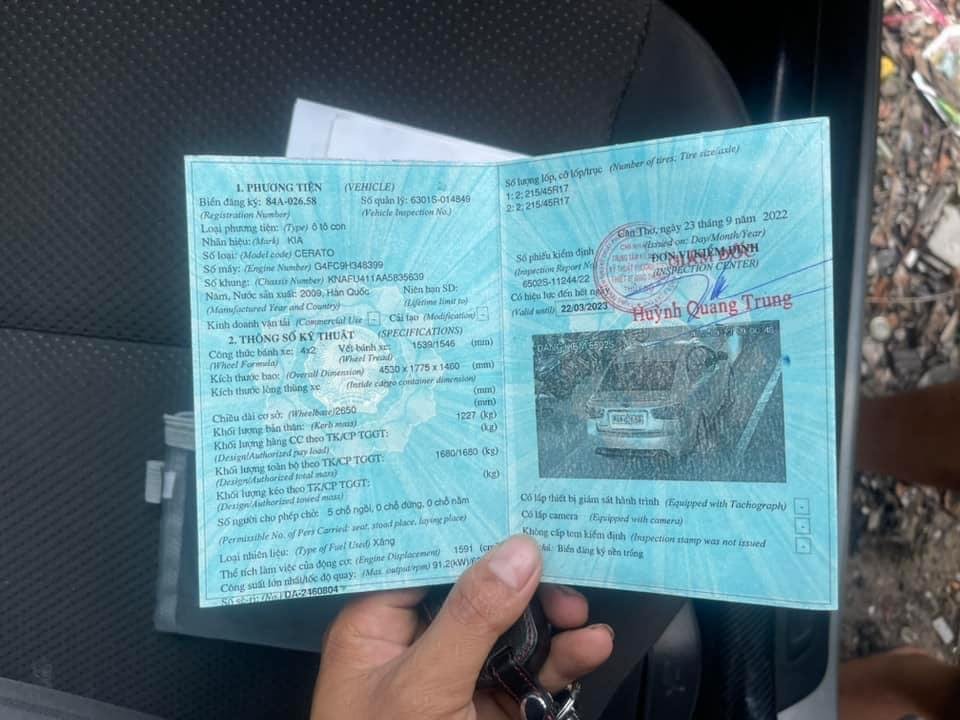 1. PHƯƠNG TIỆN (VEHICLE)
Biển đăng ký: 84A-026.58 Số quản lý: 6301S-014849
(Registration Number) (Vehicle Inspection No.)
Loại phương tiện: (Type) ô tô con
Nhãn hiệu: (Mark) KIA
Số loại: (Model code) CERATO
Số máy: (Engine Number) G4FC9H348399
Số khung: (Chassis Number) KNAFU411AA5835639
Năm, Nước sản xuất: 2009, Hàn Quốc Niên hạn SD:
(Manufactured Year and Country) (Lifetime limit to)
Kinh doanh vận tải (Commercial Use) - Cải tạo (Modification) -
2. THÔNG SỐ KỸ THUẬT (SPECIFICATIONS)
Công thức bánh xe: 4x2 Vết bánh xe: 1539/1546 (mm)
(Wheel Formula) (Wheel Tread)
Kích thước bao: (Overall Dimension) 4530 x 1775 x 1460 (mm)
Kích thước lòng thùng xe (Inside cargo container dimension)
(mm)
Chiều dài cơ sở: (Wheelbase) 2650 (mm)
Khối lượng bản thân: (Kerb mass) 1227 (kg)
Khối lượng hàng CC theo TK/CP TGGT: (kg)
(Design/Authorized pay load)
Khối lượng toàn bộ theo TK/CP TGGT: 1680/1680 (kg)
(Design/Authorized total mass)
Khối lượng kéo theo TK/CP TGGT: (kg)
(Design/Authorized towed mass)
Số người cho phép chở: 5 chỗ ngồi, 0 chỗ đứng, 0 chỗ nằm
(Permissible No. of Pers Carried: seat, stood place, laying place)
Loại nhiên liệu: (Type of Fuel Used) Xăng
Thể tích làm việc của động cơ: (Engine Displacement) 1591
Công suất lớn nhất/tốc độ quay: (Max. output/rpm) 91.2(kW)/
Số sê-ri: (No.) DA-2160804
Số lượng lốp, cỡ lốp/trục (Number of tires; Tire size/axle)
1: 2; 215/45R17
2: 2; 215/45R17
Cần Thơ, ngày 23 tháng 9 năm 2022
(Issued on: Day/Month/Year)
Số phiếu kiểm định ĐƠN VỊ KIỂM ĐỊNH
(Inspection Report No) (INSPECTION CENTER)
GIÁM ĐỐC
6502S-11244/22
Có hiệu lực đến hết ngày
(Valid until) 22/03/2023
Huỳnh Quang Trung
Có lắp thiết bị giám sát hành trình (Equipped with Tachograph) -
Có lắp camera (Equipped with camera) -
Không cấp tem kiểm định (Inspection stamp was not issued -
Biển đăng ký nền trắng